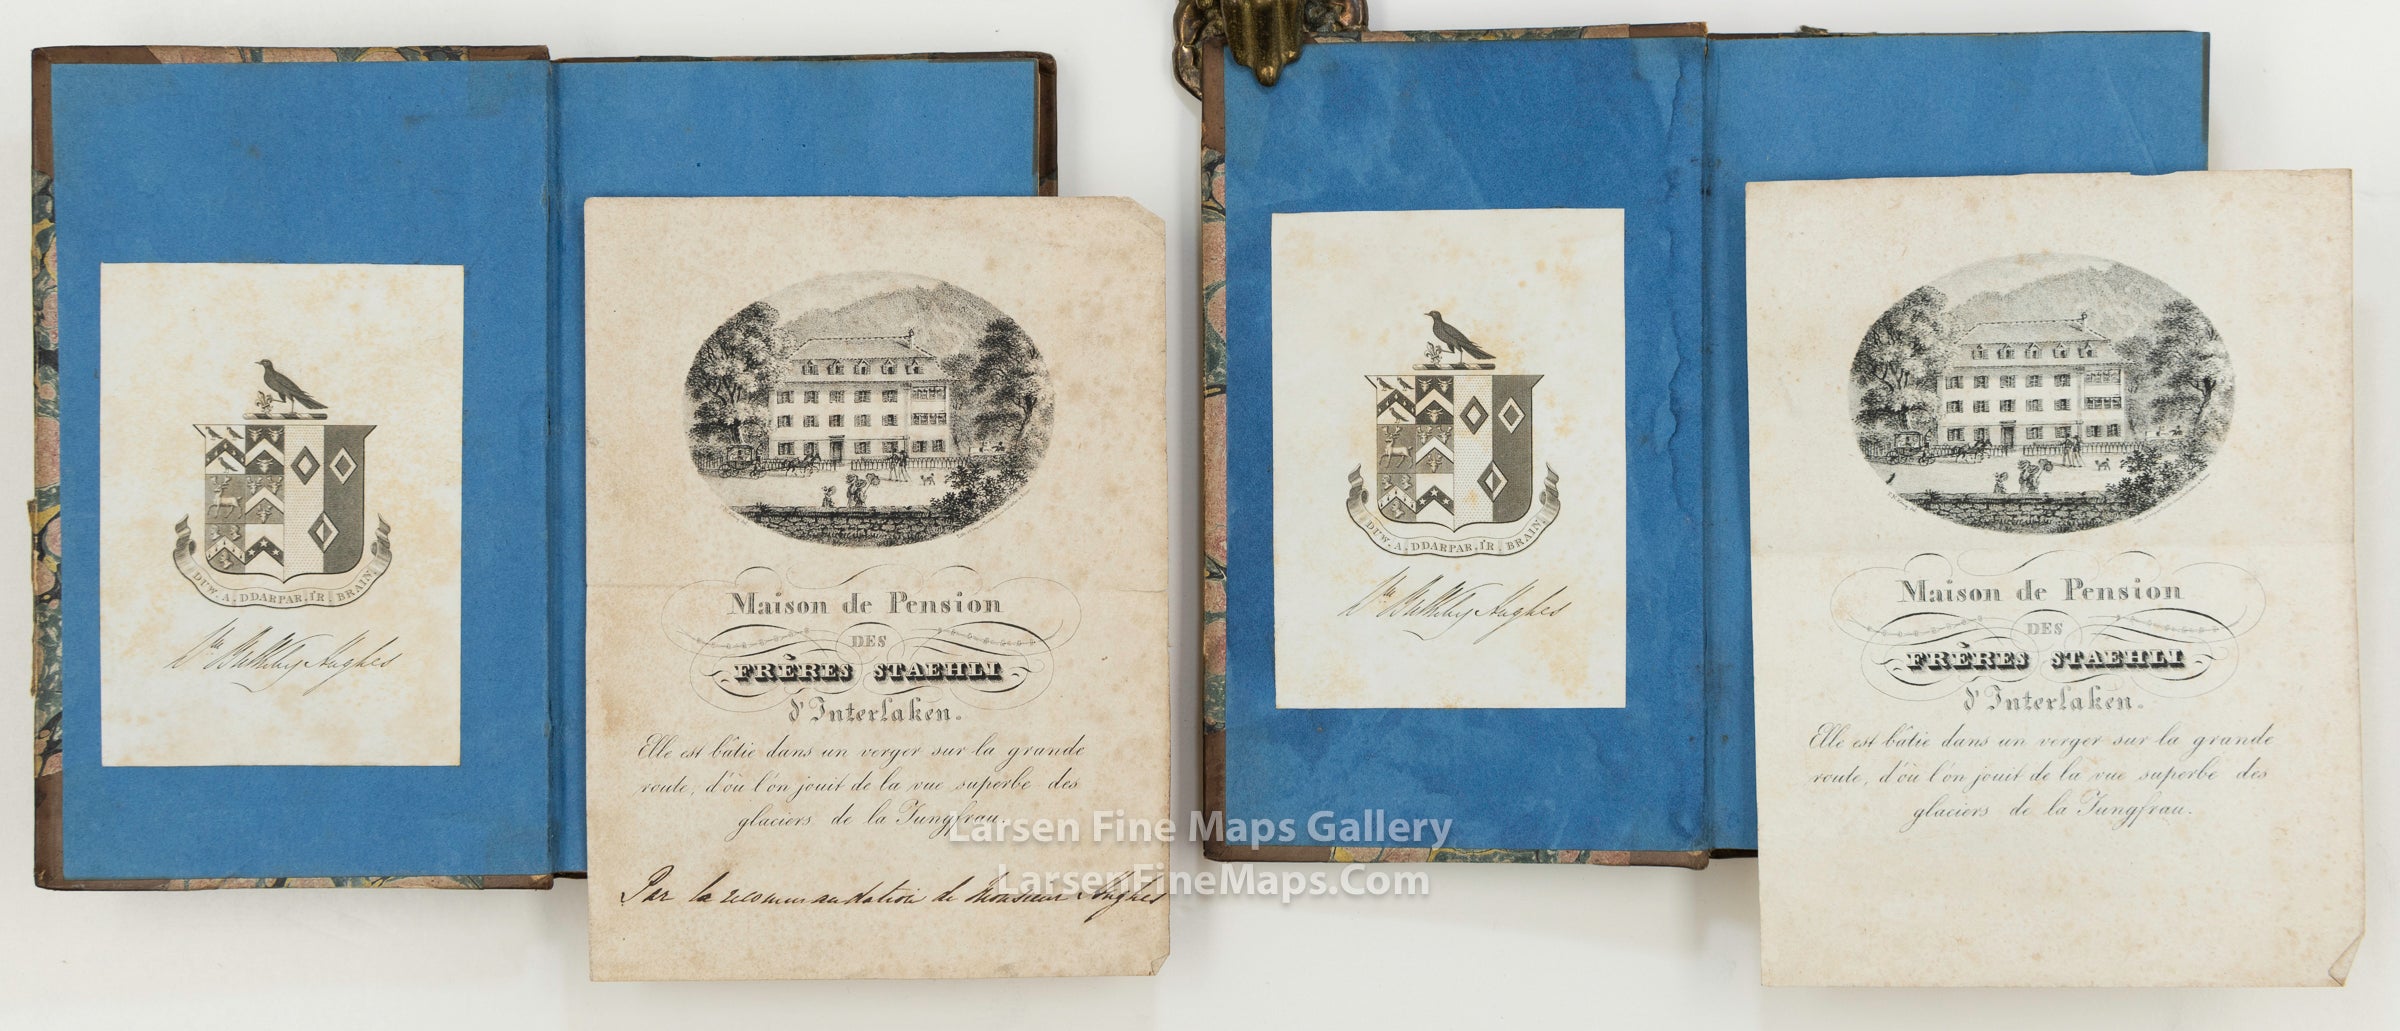 DUW. A. DDARPAR. I'R. BRAIN.
Hughes
Maison de Pension
DES
FRÈRES STAEHLI
d'Interlaken.
Elle est bâtie dans un verger sur la grande
route, d'où l'on jouit de la vue superbe des
glaciers de la Jungfrau.
Par la recommandation de Monsieur Hughes
DUW. A. DDARPAR. I'R. BRAIN.
Hughes
Maison de Pension
DES
FRÈRES STAEHLI
d'Interlaken.
Elle est bâtie dans un verger sur la grande
route, d'où l'on jouit de la vue superbe des
glaciers de la Jungfrau.
Larsen Fine Maps Gallery
LarsenFineMaps.Com